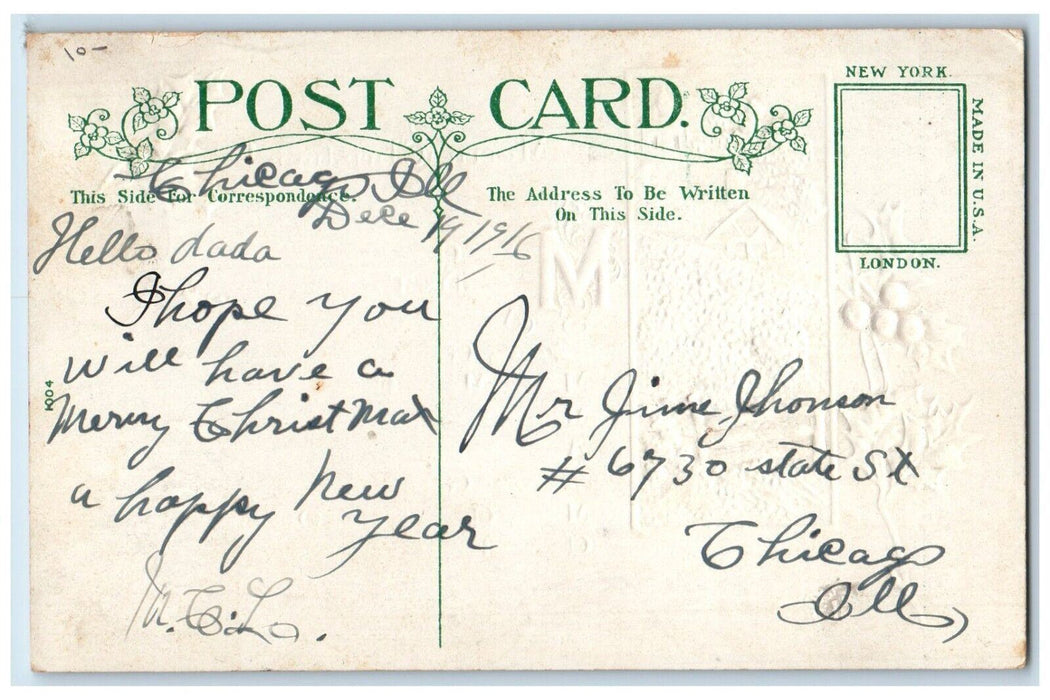 10-
POST CARD.
NEW YORK.
MADE IN U.S.A.
LONDON.
This Side For Correspondence.
The Address To Be Written
On This Side.
Chicago Ill
Dece 19 1916
Hello dada
I hope you
will have a
Merry Christmax
a happy New
year
M.C.L.
1004
Mr Jime Jhonson
# 6730 state St
Chicago
Ill,
M